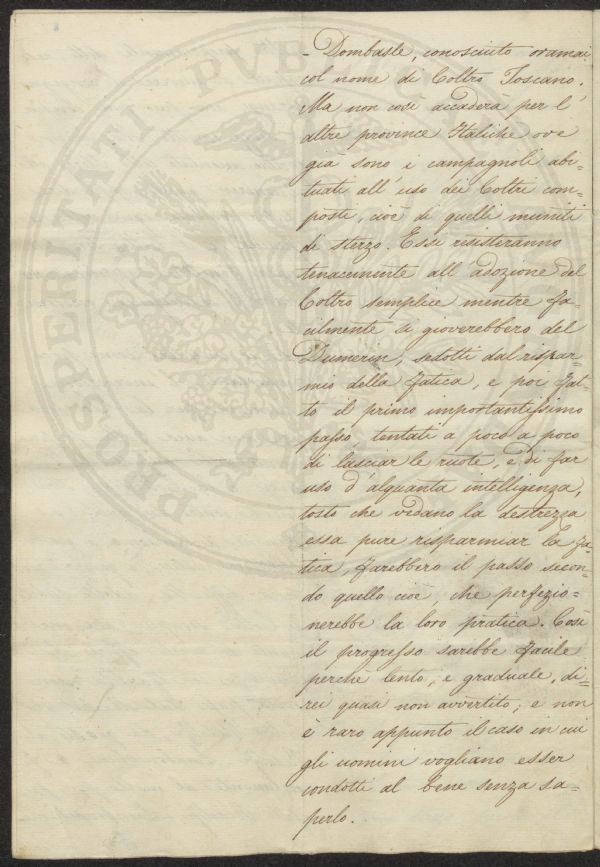 - Dombasle, conosciuto oramai
col nome di Coltro Toscano.
Ma non così accaderà per l'
altre province Italiche ove
già sono i campagnoli abi=
tuati all'uso dei Coltri com=
posti, cioè di quelli muniti
di sterzo. Essi resisteranno
tenacemente all'adozione del
Coltro semplice mentre fa=
cilmente si gioverebbero del
Dumerin, sedotti dal rispar=
mio della fatica, e poi fat=
to il primo importantissimo
passo, tentati a poco a poco
di lasciar le ruote, e di far
uso d'alquanta intelligenza,
tosto che vedano la destrezza
essa pure risparmiar la fa=
tica, farebbero il passo secon=
do quello cioè, che perfezio=
nerebbe la loro pratica. Così
il progresso sarebbe facile
perchè lento, e graduale, di=
rei quasi non avvertito; e non
è raro appunto il caso in cui
gli uomini vogliano esser
condotti al bene senza sa=
perlo.
PROSPERITATI PUB